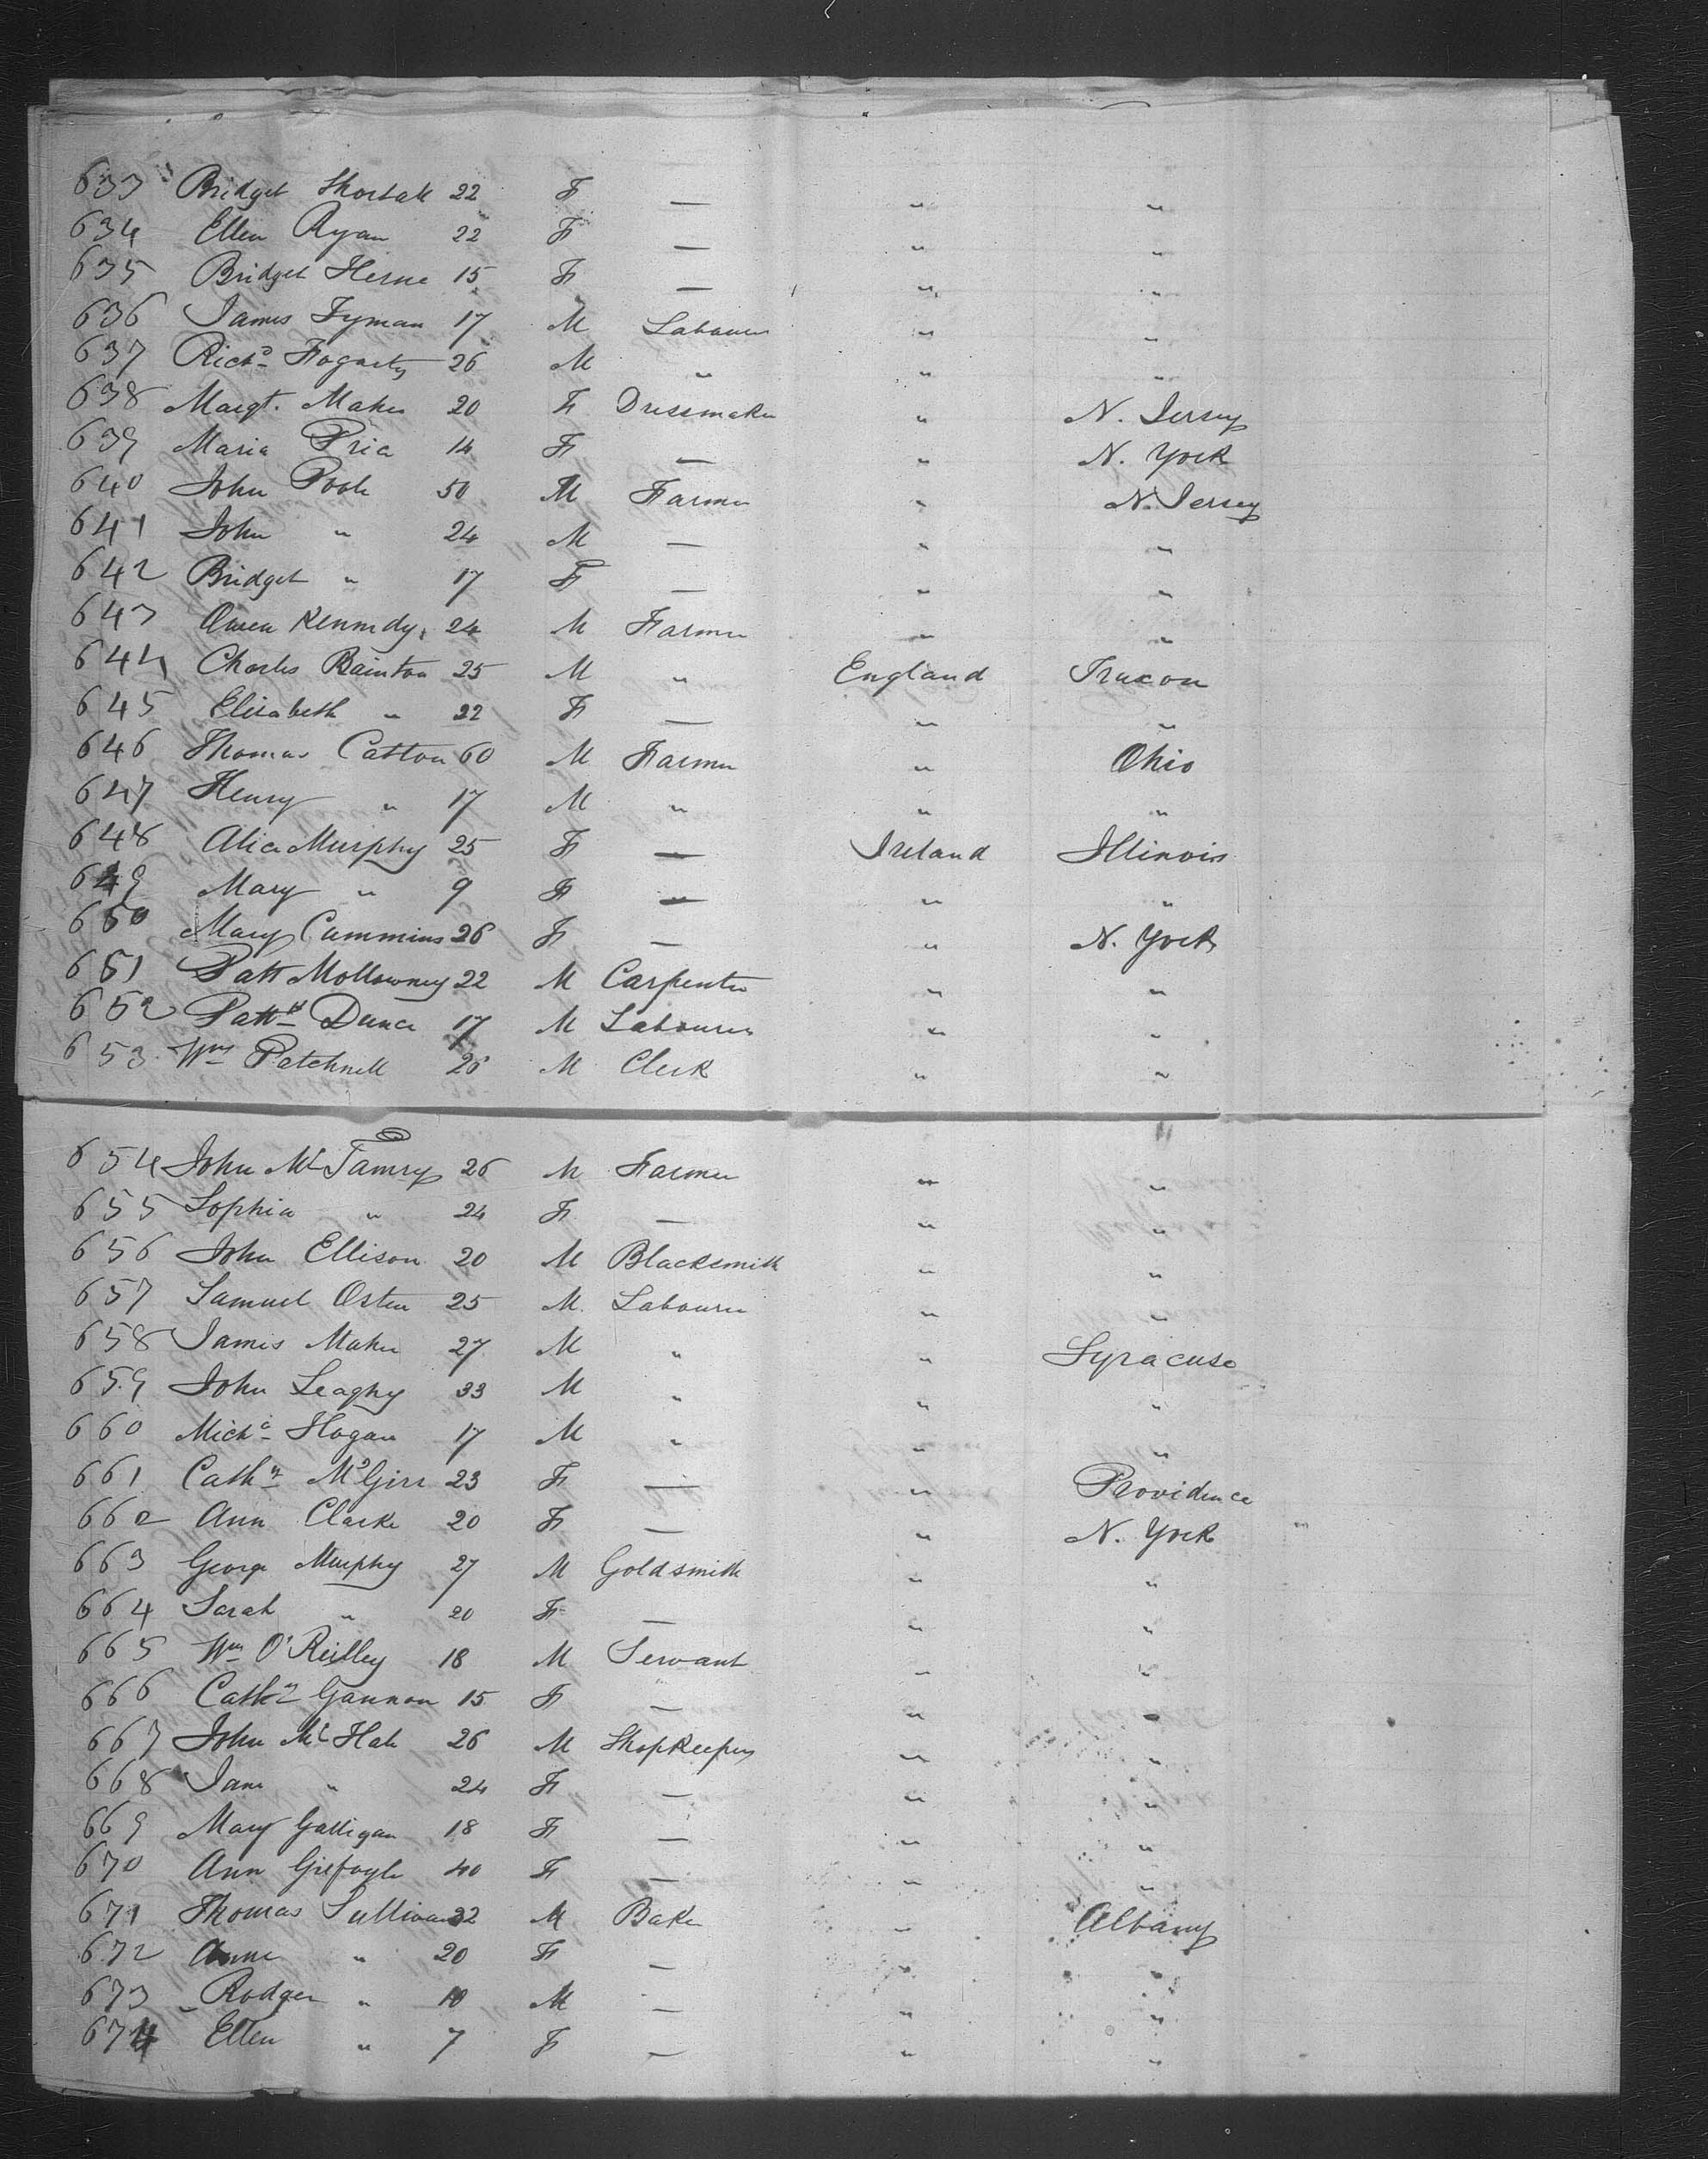 633 Bridget Shortall 22 F — " "
634 Ellen Ryan 22 F — " "
635 Bridget Herne 15 F — " "
636 James Fyman 17 M Labourer " "
637 Richd Fogarty 26 M " " "
638 Margt. Maher 20 F Dressmaker " N. Jersey
639 Maria Price 14 F — " N. York
640 John Poole 50 M Farmer " N. Jersey
641 John " 24 M — " "
642 Bridget " 17 F — " "
643 Owen Kennedy 24 M Farmer " "
644 Charles Bainton 25 M " England Truxon
645 Elizabeth " 22 F — " "
646 Thomas Catton 60 M Farmer " Ohio
647 Henry " 17 M " " "
648 Alice Murphy 25 F — Ireland Illinois
649 Mary " 9 F — " "
650 Mary Cummins 26 F — " N. York
651 Patt Mollowney 22 M Carpenter " "
652 Pattk Dunce 17 M Labourer " "
653 Wm Patchnell 26 M Clerk " "
654 John Mc Tamry 26 M Farmer " "
655 Sophia " 24 F — " "
656 John Ellison 20 M Blacksmith " "
657 Samuel Osten 25 M Labourer " "
658 James Maher 27 M " " Syracuse
659 John Leaghy 33 M " " "
660 Micha Hogan 17 M " " "
661 Cathn McGirr 23 F — " Providence
662 Ann Clarke 20 F — " N. York
663 George Murphy 27 M Goldsmith " "
664 Sarah " 20 F — " "
665 Wm O'Reilley 18 M Servant " "
666 Cathn Gannon 15 F — " "
667 John Mc Hale 26 M Shopkeeper " "
668 Jane " 24 F — " "
669 Mary Galligan 18 F — " "
670 Ann 40 F — " "
671 Thomas Sullivan 22 M Baker " Albany
672 Anne " 20 F — " "
673 Rodger " 10 M — " "
674 Ellen " 7 F — " "